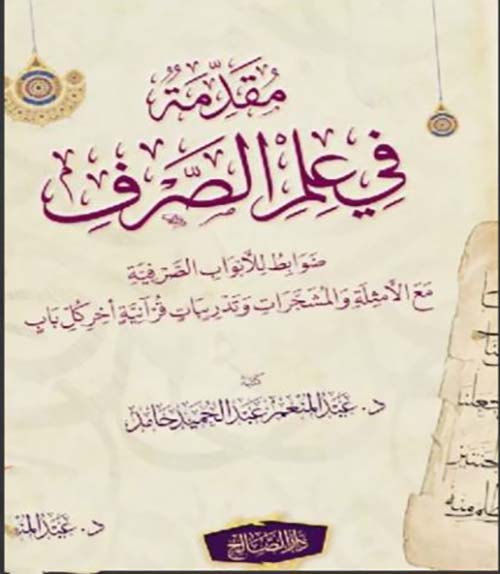 مُقَدِّمَةٌ
فِي عِلْمِ الصَّرْفِ
ضَوَابِطُ لِلْأَبْوَابِ الصَّرْفِيَّةِ
مَعَ الأَمْثِلَةِ وَالمُشَجَّرَاتِ وَتَدْرِيبَاتٍ قُرْآنِيَّةٍ آخِرَ كُلِّ بَابٍ
كتبه
د. عَبْدُ المُنْعِم عَبْدُ الحَمِيْد حَامِد
د. عَبْدُ المُنْـ
دَارُ الصَّالِح